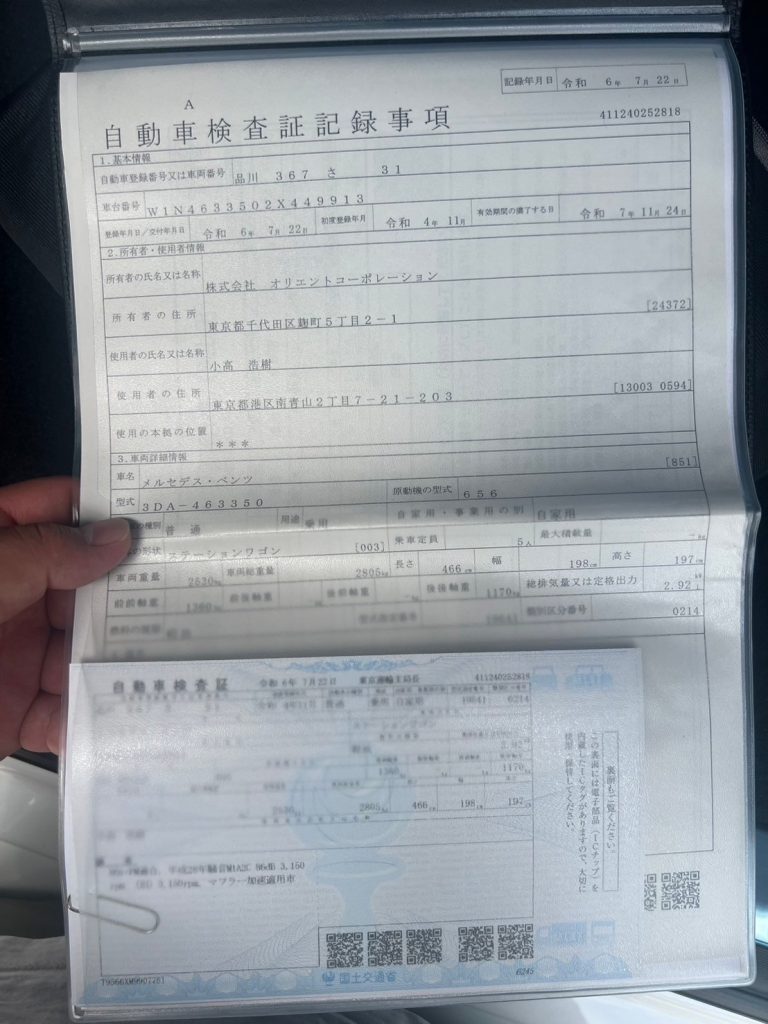 記録年月日 令和 6年 7月 22日
A
自動車検査証記録事項
411240252818
1.基本情報
自動車登録番号又は車両番号 品川 367 さ 31
車台番号 W1N4633502X449913
登録年月日/交付年月日 令和 6年 7月 22日 初度登録年月 令和 4年 11月 有効期間の満了する日 令和 7年 11月 24日
2.所有者・使用者情報
所有者の氏名又は名称 株式会社 オリエントコーポレーション
所有者の住所 東京都千代田区麹町5丁目2-1 [24372]
使用者の氏名又は名称 小高 浩樹
使用者の住所 東京都港区南青山2丁目7-21-203 [13003 0594]
使用の本拠の位置 ***
3.車両詳細情報
車名 メルセデス・ベンツ [851]
型式 3DA-463350 原動機の型式 656
の種別 普通 用途 乗用 自家用・事業用の別 自家用
の形状 ステーションワゴン [003] 乗車定員 5人 最大積載量 -kg
車両重量 2530kg 車両総重量 2805kg 長さ 466cm 幅 198cm 高さ 197cm
前前軸重 1360kg 前後軸重 kg 後前軸重 kg 後後軸重 1170kg 総排気量又は定格出力 2.92
類別区分番号 0214
自動車検査証 令和 6年 7月22日 東京運輸支局長 411240252818
令和 4年11月 普通 乗用 自家用 19641 0214
ステーションワゴン
2.92
1360 1170
2530 2805 466 198 197
平成28年騒音M1A2C 86dB 3,150
rpm (H) 3,150rpm, マフラー加速適用車
裏面もご覧ください。
この裏面には電子部品(ICチップ)を
内蔵したICタグがありますので、大切に
使用・保管してください。
国土交通省
6245
T9566XM9907761